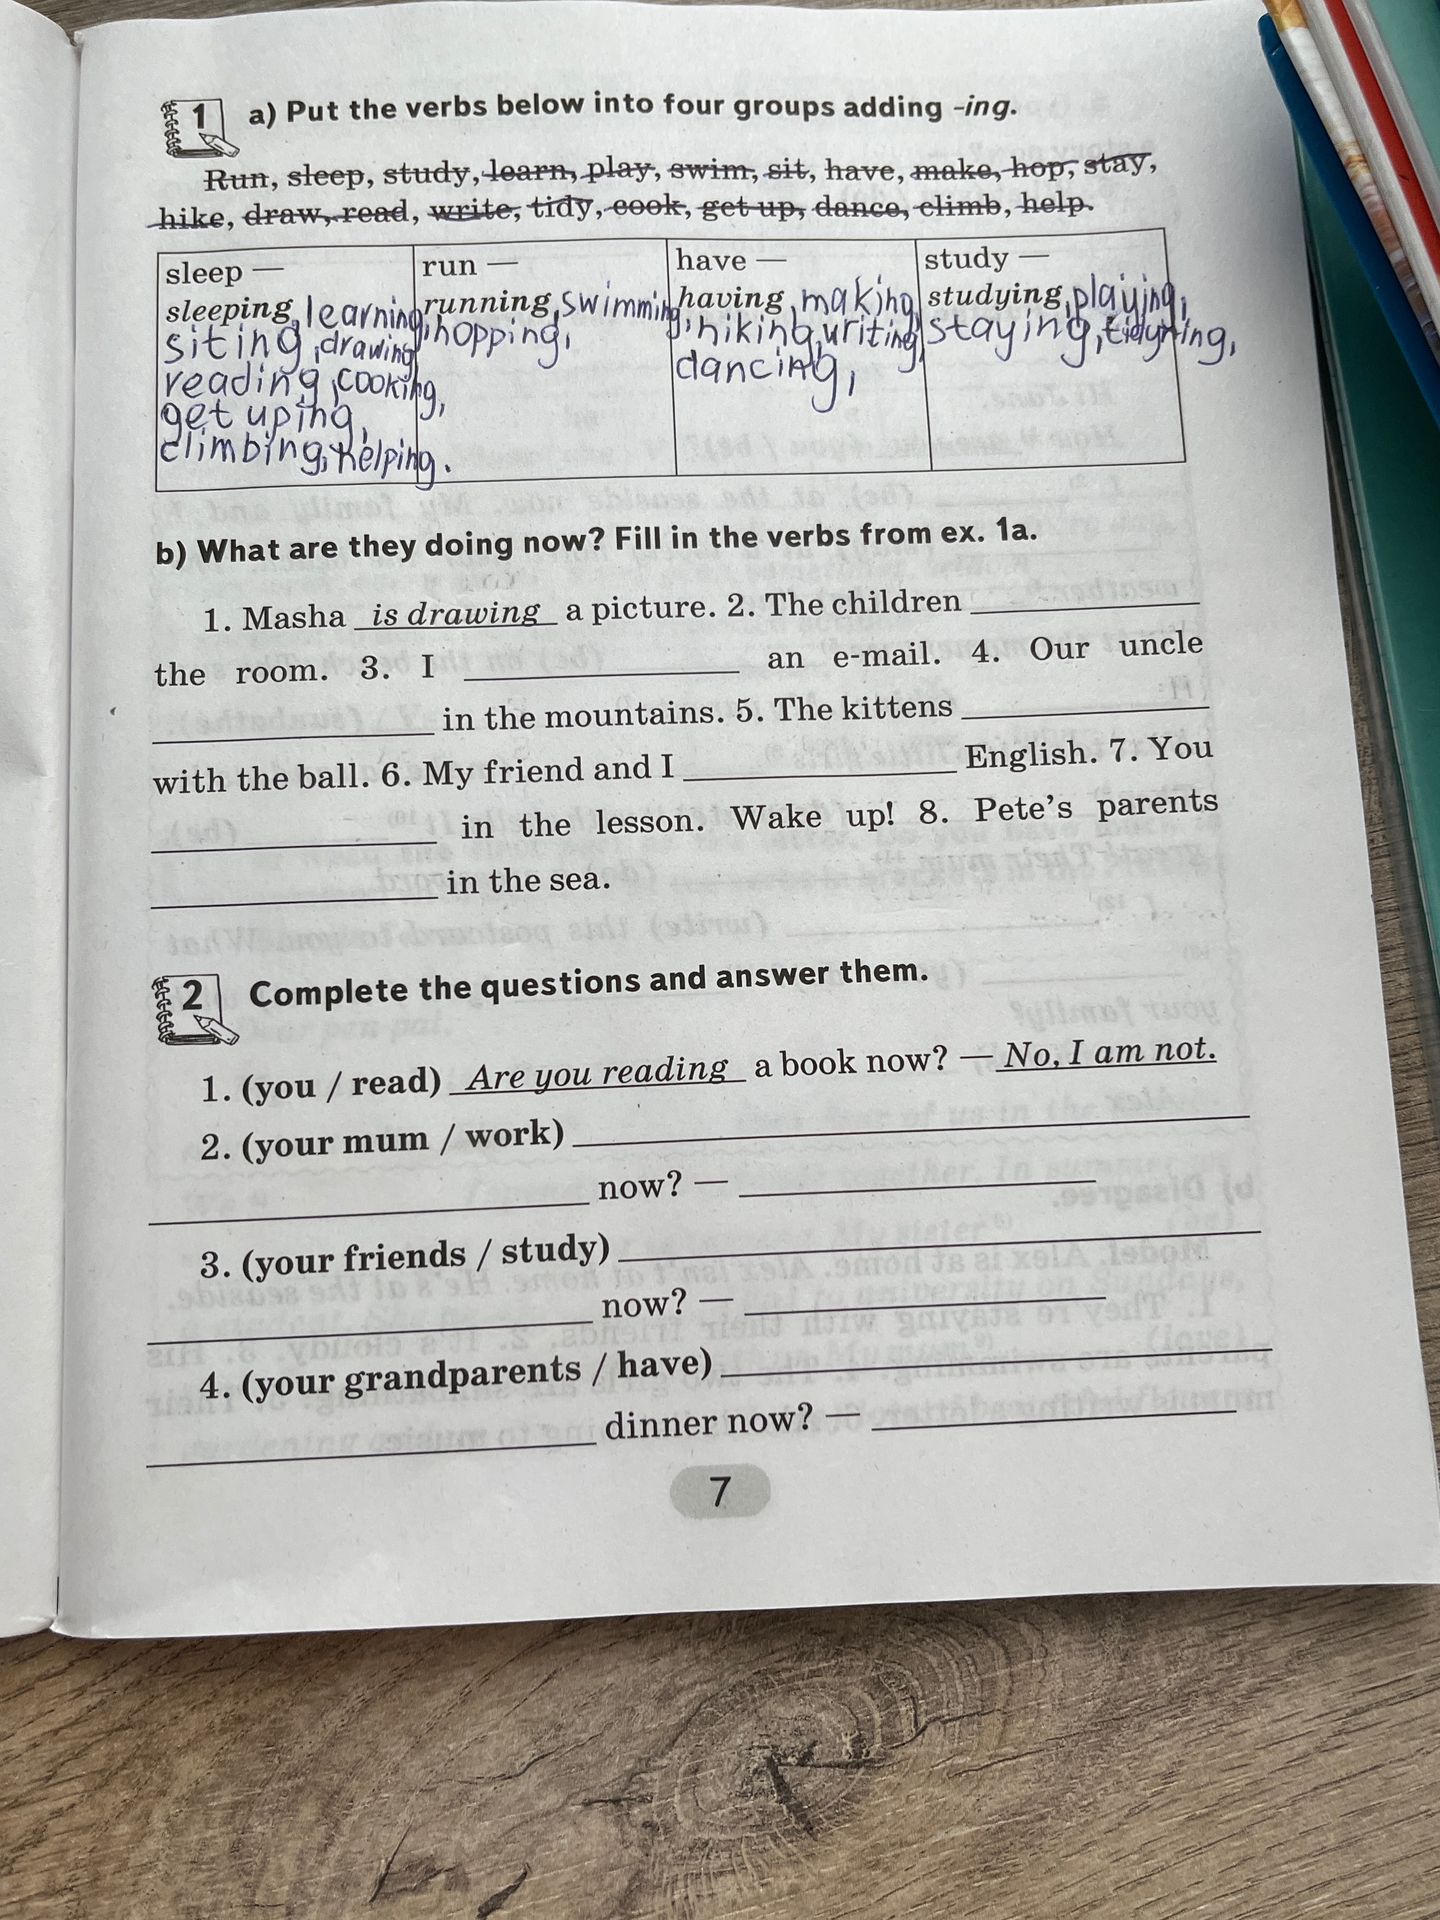 1 a) Put the verbs below into four groups adding -ing.
Run, sleep, study, learn, play, swim, sit, have, make, hop, stay,
hike, draw, read, write, tidy, cook, get up, dance, climb, help.
sleep — run — have — study —
sleeping, learning, running, swimming, having, making, studying, playing,
siting, drawing hopping, hiking, writing, staying, tidying,
reading, cooking, dancing,
get uping,
climbing, helping.
b) What are they doing now? Fill in the verbs from ex. 1a.
1. Masha is drawing a picture. 2. The children
the room. 3. I an e-mail. 4. Our uncle
in the mountains. 5. The kittens
with the ball. 6. My friend and I English. 7. You
in the lesson. Wake up! 8. Pete's parents
in the sea.
2 Complete the questions and answer them.
1. (you / read) Are you reading a book now? — No, I am not.
2. (your mum / work)
now? —
3. (your friends / study)
now? —
4. (your grandparents / have)
dinner now? —
7